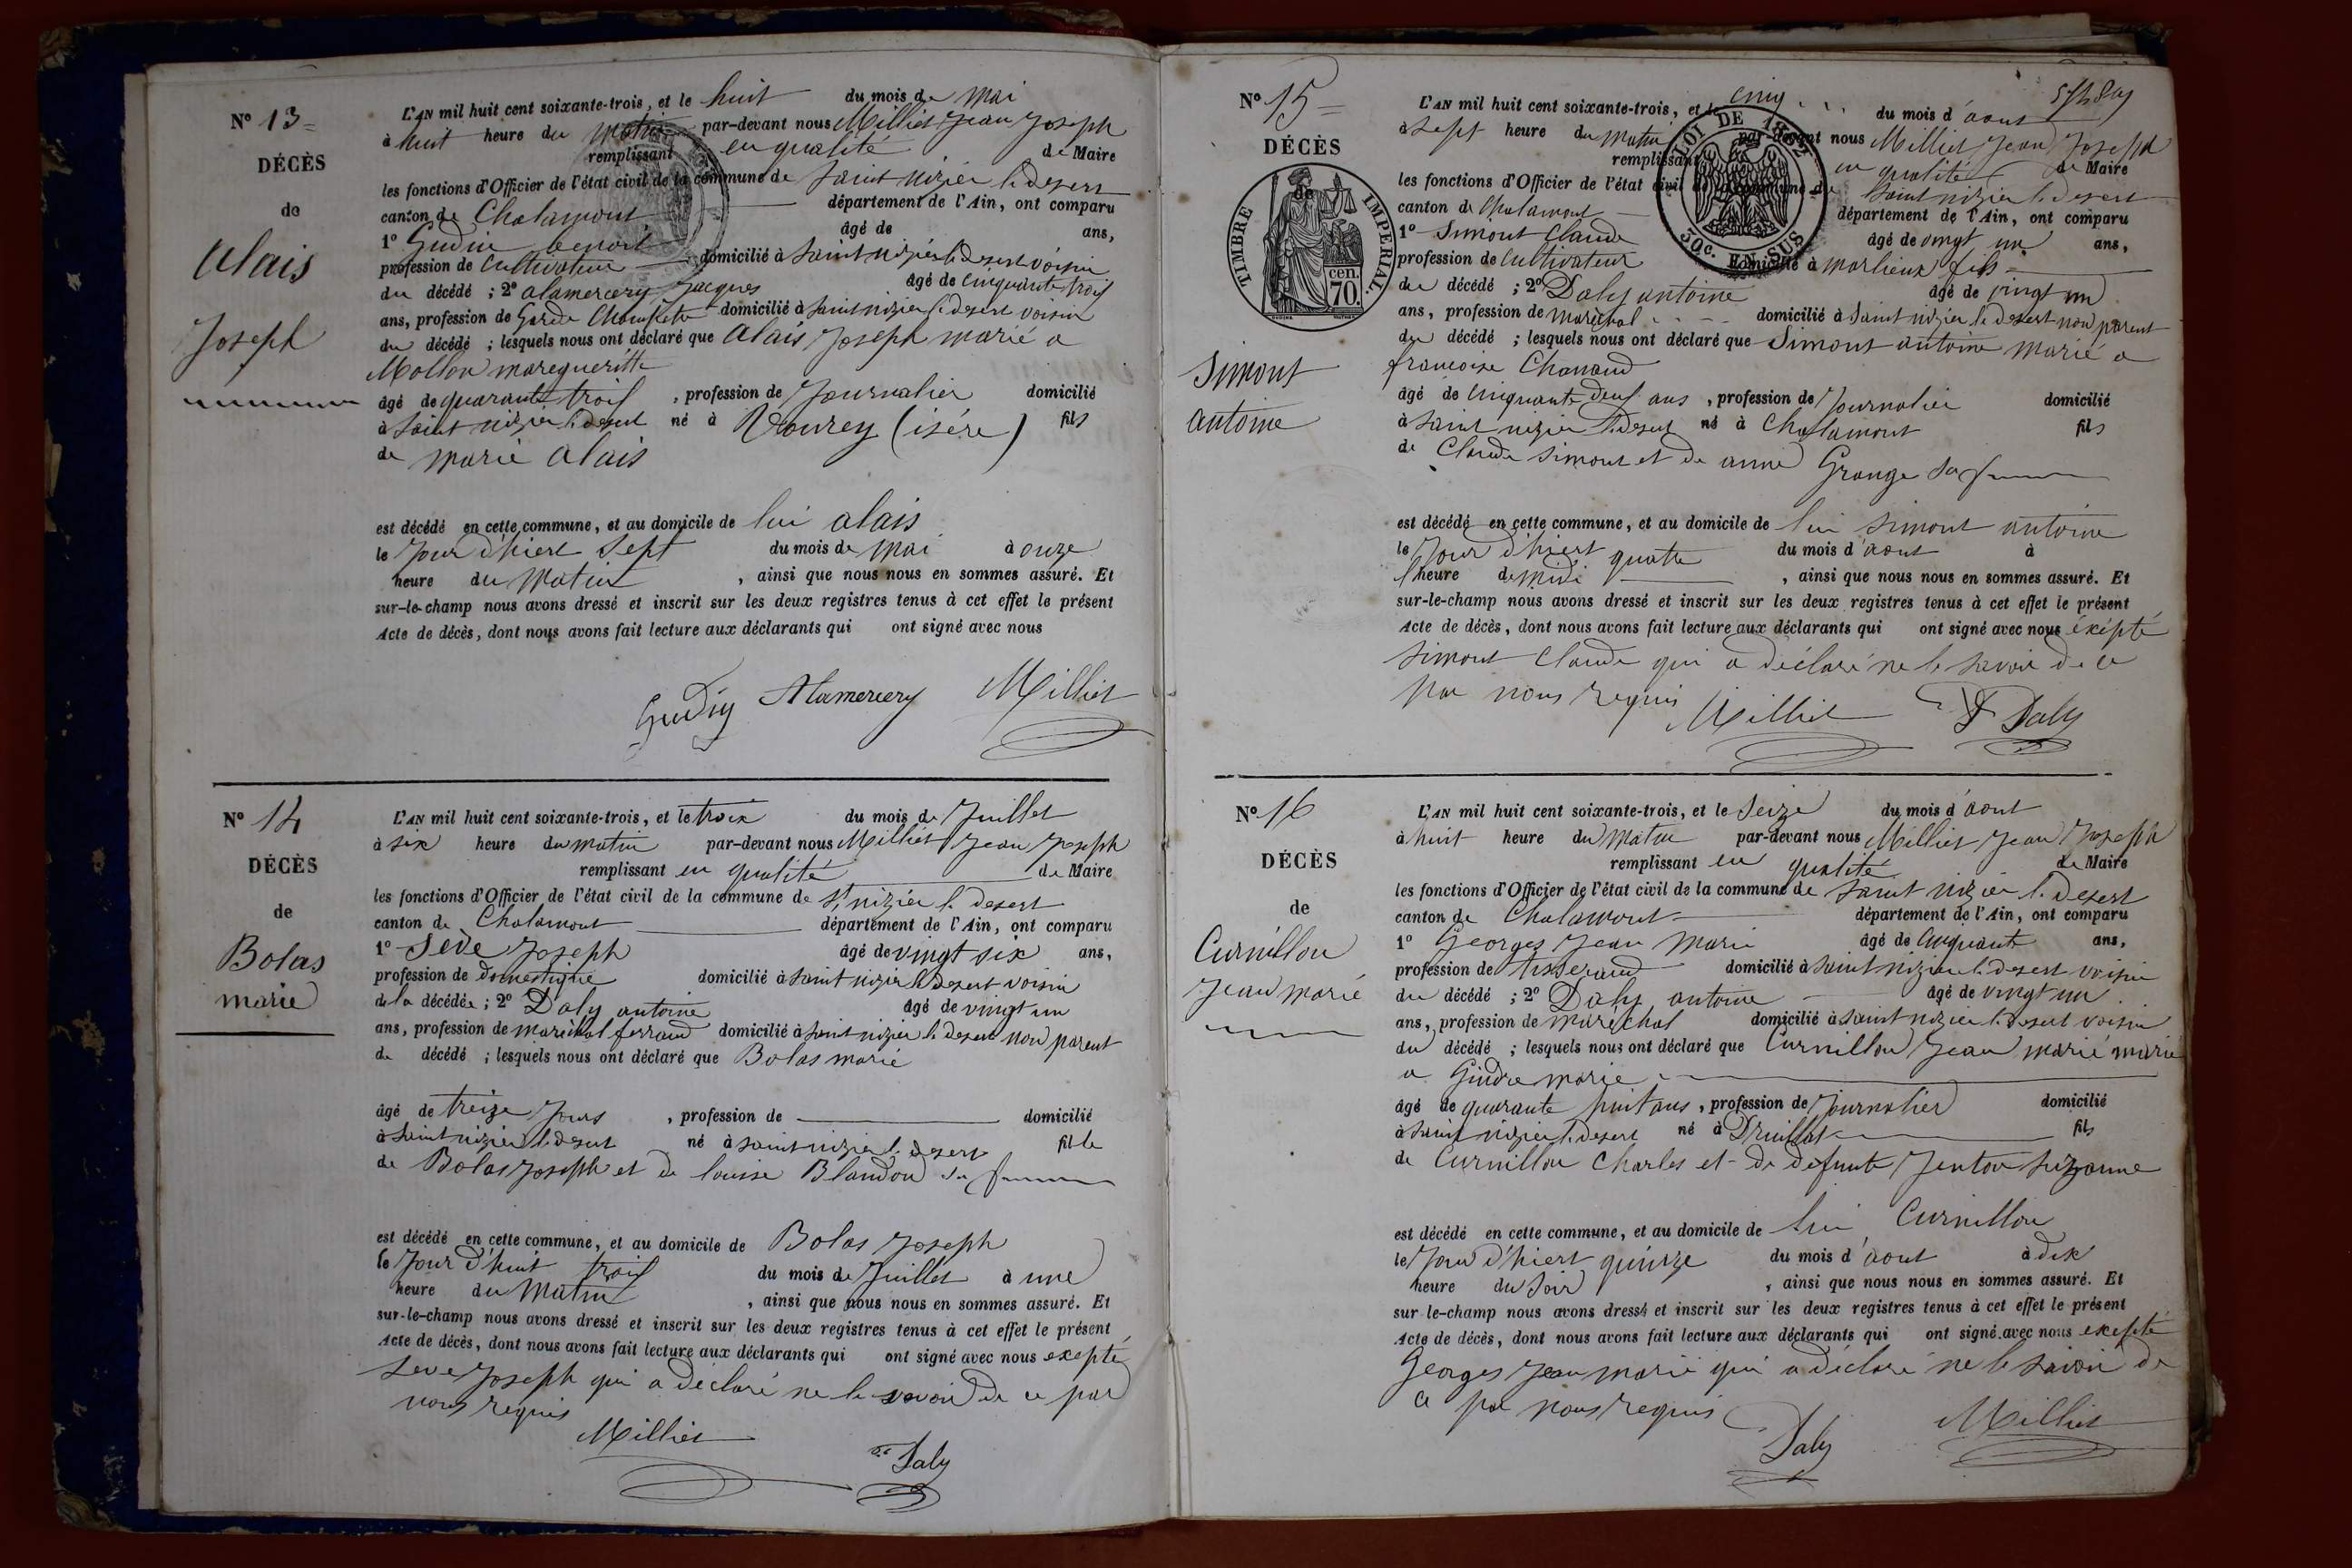 N° 13
DÉCÈS
de
Alais
Joseph
L'AN mil huit cent soixante-trois, et le huit du mois de Mai
à huit heure du matin par-devant nous Milliet Jean Joseph
remplissant en qualité de Maire
les fonctions d'Officier de l'état civil de la commune de Saint nizier le desert
canton de Chalamont département de l'Ain, ont comparu
1° Gudin benoit âgé de ans,
profession de cultivateur domicilié à Saint nizier le desert voisin
du décédé ; 2° alamercery Jacques âgé de cinquante trois
ans, profession de Garde Champêtre domicilié à Saint nizier le desert voisin
du décédé ; lesquels nous ont déclaré que Alais Joseph marié a
Mollon margueritte
âgé de quarante trois , profession de Journalier domicilié
à Saint nizier le desert né à Vourey (isére) fils
de marie Alais
est décédé en cette commune, et au domicile de lui alais
le Jour d'hiert Sept du mois de Mai à onze
heure du Matin , ainsi que nous nous en sommes assuré. Et
sur-le-champ nous avons dressé et inscrit sur les deux registres tenus à cet effet le présent
Acte de décès, dont nous avons fait lecture aux déclarants qui ont signé avec nous
Gudin Alamercery Milliet
N° 14
DÉCÈS
de
Bolas
marie
L'AN mil huit cent soixante-trois, et le trois du mois de Juillet
à six heure du matin par-devant nous Milliet Jean Joseph
remplissant en qualité de Maire
les fonctions d'Officier de l'état civil de la commune de St nizier le desert
canton de Chalamont département de l'Ain, ont comparu
1° Seve Joseph âgé de vingt six ans,
profession de domestique domicilié à Saint nizier le desert voisin
de la décédée ; 2° Daly antoine âgé de vingt un
ans, profession de maréchal ferrand domicilié à Saint nizier le desert non parent
de décédé ; lesquels nous ont déclaré que Bolas marie
âgé de treize Jours , profession de domicilié
à Saint nizier le desert né à Saint nizier le desert fille
de Bolas Joseph et de louise Blandon sa femme
est décédé en cette commune, et au domicile de Bolas Joseph
le Jour d'huit trois du mois de Juillet à une
heure du Matin , ainsi que nous nous en sommes assuré. Et
sur-le-champ nous avons dressé et inscrit sur les deux registres tenus à cet effet le présent
Acte de décès, dont nous avons fait lecture aux déclarants qui ont signé avec nous exepté
Seve Joseph qui a déclaré ne le savoir de ce par
nous requis
Milliet Daly
N° 15
DÉCÈS
de
TIMBRE IMPERIAL.
cen.
70.
Simont
antoine
LOI DE 1862
30c. EN SUS
L'AN mil huit cent soixante-trois, et le cinq du mois d'aout
à Sept heure du matin par-devant nous Milliet Jean Joseph
remplissant en qualité de Maire
les fonctions d'Officier de l'état civil de la commune de Saint nizier le desert
canton de Chalamont département de l'Ain, ont comparu
1° Simont Claude âgé de vingt un ans,
profession de Cultivateur domicilié à marlieux fils
du décédé ; 2° Daly antoine âgé de vingt un
ans, profession de maréchal domicilié à Saint nizier le desert non parent
du décédé ; lesquels nous ont déclaré que Simont antoine marié a
francoise Chanaud
âgé de cinquante deux ans , profession de Journalier domicilié
à Saint nizier le desert né à Chalamont fils
de Claude Simont et de anne Grange sa femme
est décédé en cette commune, et au domicile de lui Simont antoine
le Jour d'hiert quatre du mois d'aout à
l'heure de midi , ainsi que nous nous en sommes assuré. Et
sur-le-champ nous avons dressé et inscrit sur les deux registres tenus à cet effet le présent
Acte de décès, dont nous avons fait lecture aux déclarants qui ont signé avec nous éxépté
Simont Claude qui a déclaré ne le savoir de ce
par nous requis Milliet Daly
N° 16
DÉCÈS
de
Curnillon
Jean marie
L'AN mil huit cent soixante-trois, et le Seize du mois d'aout
à huit heure du Matin par-devant nous Milliet Jean Joseph
remplissant en qualité de Maire
les fonctions d'Officier de l'état civil de la commune de Saint nizier le desert
canton de Chalamont département de l'Ain, ont comparu
1° Georges Jean Marie âgé de cinquante ans,
profession de tisserand domicilié à Saint nizier le desert voisin
du décédé ; 2° Daly antoine âgé de vingt un
ans, profession de maréchal domicilié à Saint nizier le desert voisin
du décédé ; lesquels nous ont déclaré que Curnillon Jean marie marié
a Gindre marie
âgé de quarante huit ans , profession de Journalier domicilié
à Saint nizier le desert né à Druillat fils
de Curnillon Charles et de defunte Jenton Suzanne
est décédé en cette commune, et au domicile de lui Curnillon
le Jour d'hiert quinze du mois d'aout à dix
heure du Soir , ainsi que nous nous en sommes assuré. Et
sur-le-champ nous avons dressé et inscrit sur les deux registres tenus à cet effet le présent
Acte de décès, dont nous avons fait lecture aux déclarants qui ont signé avec nous exepté
Georges Jean marie qui a déclaré ne le savoir de
ce par nous requis
Daly Milliet